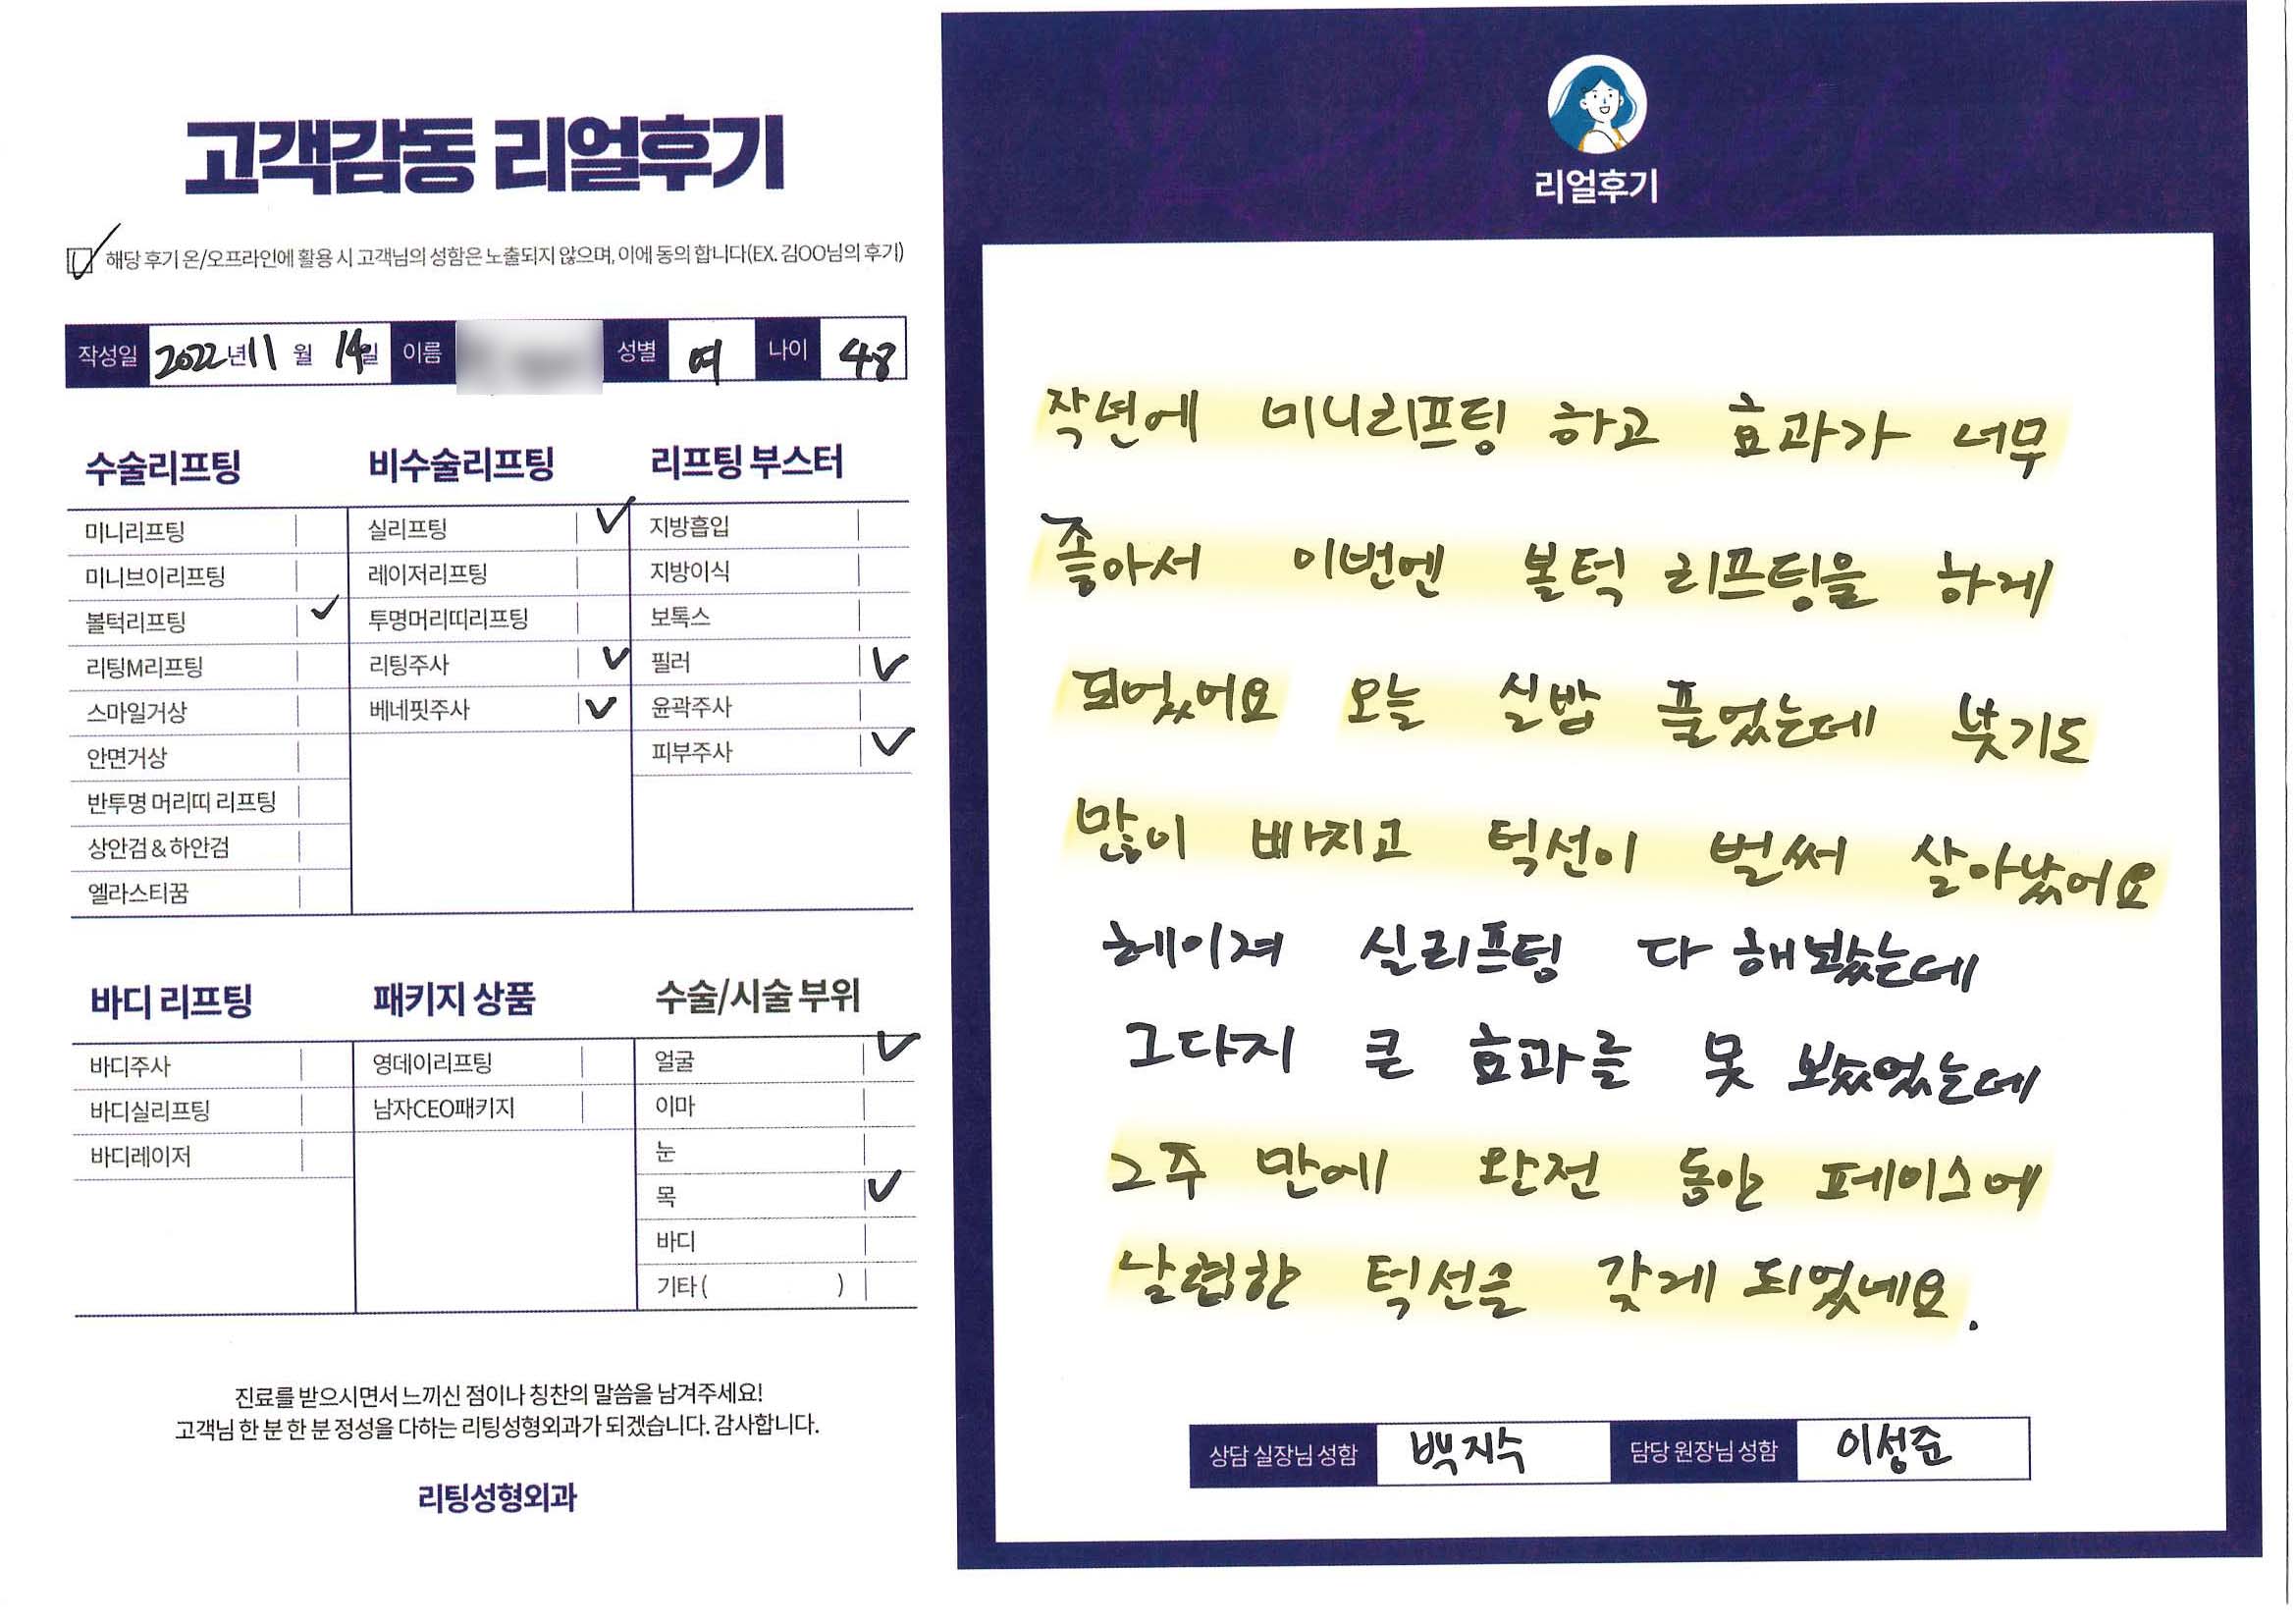 고객감동 리얼후기
해당 후기 온/오프라인에 활용 시 고객님의 성함은 노출되지 않으며, 이에 동의 합니다(EX. 김OO님의 후기)
작성일 2022년 11월 14일 이름 성별 여 나이 48
수술리프팅
미니리프팅
미니브이리프팅
볼턱리프팅 ✓
리팅M리프팅
스마일거상
안면거상
반투명 머리띠 리프팅
상안검 & 하안검
엘라스티꿈
비수술리프팅
실리프팅 ✓
레이저리프팅
투명머리띠리프팅
리팅주사 ✓
베네핏주사 ✓
리프팅 부스터
지방흡입
지방이식
보톡스
필러 ✓
윤곽주사
피부주사 ✓
바디 리프팅
바디주사
바디실리프팅
바디레이저
패키지 상품
영데이리프팅
남자CEO패키지
수술/시술 부위
얼굴 ✓
이마
눈
목 ✓
바디
기타 ( )
진료를 받으시면서 느끼신 점이나 칭찬의 말씀을 남겨주세요!
고객님 한 분 한 분 정성을 다하는 리팅성형외과가 되겠습니다. 감사합니다.
리팅성형외과
리얼후기
작년에 미니리프팅 하고 효과가 너무
좋아서 이번엔 볼턱 리프팅을 하게
되었어요 오늘 실밥 풀었는데 붓기도
많이 빠지고 턱선이 벌써 살아났어요
헤이져 실리프팅 다 해봤는데
그다지 큰 효과를 못 봤었는데
2주 만에 완전 동안 페이스에
날렵한 턱선을 갖게 되었네요.
상담 실장님 성함 백지수 담당 원장님 성함 이성준